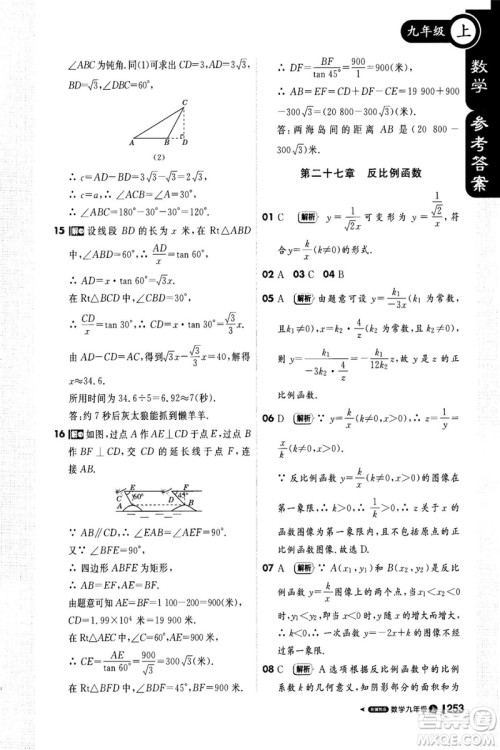 九年级 上
数学 参考答案
∠ABC 为钝角. 同(1)可求出 CD=√3,
BD=√3,∠CBD=60°,
C
A B D
(2)
∴ c=AD-BD=3√3-√3=2√3,
∴ c=a,∴ ∠CAB=30°,
∴ ∠ABC=180°-30°-30°=120°.
15 解 设线段 BD 的长为 x 米,在 Rt△ABD
中,∠ABD=60°,
∴ AD/x=tan 60°,
∴ AD=x·tan 60°=√3x.
在 Rt△BCD 中,∠CBD=30°,
∴ CD/x=tan 30°,∴ CD=x·tan 30°=√3/3 x,
∴ AD-CD=AC,即√3x-√3/3 x=40,
∴ x≈34.6.
所用时间为 34.6÷5=6.92≈7(秒).
答:约 7 秒后灰太狼能抓到懒羊羊.
16 解 如图,过点 A 作 AE⊥CD 于点 E,过点
B 作 BF⊥CD,交 CD 的延长线于点 F,连
接 AB.
C E D F
60° 45°
A B
∵ AB∥CD,
∴ ∠AEF=∠EFB=∠ABF=90°,
∴ 四边形 ABFE 为矩形,
∴ AB=EF,AE=BF.
由题意可知 AE=BF=1 100-200=900(米),
CD=1.99×10⁴ 米=19 900 米.
∴ 在 Rt△AEC 中,∠C=60°,AE=900 米.
∴ CE=AE/tan 60°=900/√3=300√3(米).
在 Rt△BFD 中,∠BDF=45°,BF=900 米.
∴ DF=BF/tan 45°=900/1=900(米).
∴ AB=EF=CD+DF-CE=19 900+900-
300√3=(20 800-300√3)(米).
答:两海岛间的距离 AB 是(20 800-
300√3)米.
第二十七章 反比例函数
01 C 解析 y=1/(√2x)可变形为 y=(1/√2)/x,
符合 y=k/x(k≠0)的形式.
02 A 03 C 04 B
05 A 解析 由题意可设 y=k₁/(-3x)(k₁ 为常
数,且 k₁≠0),∵ k₁ 为常数,且 k₁≠0,
则 y=(k₁/-3)/x,∴ k₁/-3 为常数,且不为 0,∴ y 是 x
的反比例函数.
06 D 解析 ∵ k>0,k≠0,∴ z=1/y=x/k是正
比例函数.
∵ 反比例函数 y=k/x(k≠0)的图像的一支
在第一象限,∴ k>0,∴ 1/k>0,∴ z 关于 x
的函数图像为第一象限内,且不包括原点的
正比例函数图像.
07 A 解析 ∵ A(x₁,y₁),B(x₂,y₂)都是反
比例函数 y=1/x图像上的两个点,且x₁<x₂<
0,∴ y₁>y₂.
08 C 解析 A 选项根据反比例函数系数k
的几何意义可知,阴影部分面积为 xy=3,
数学九年级 上 253